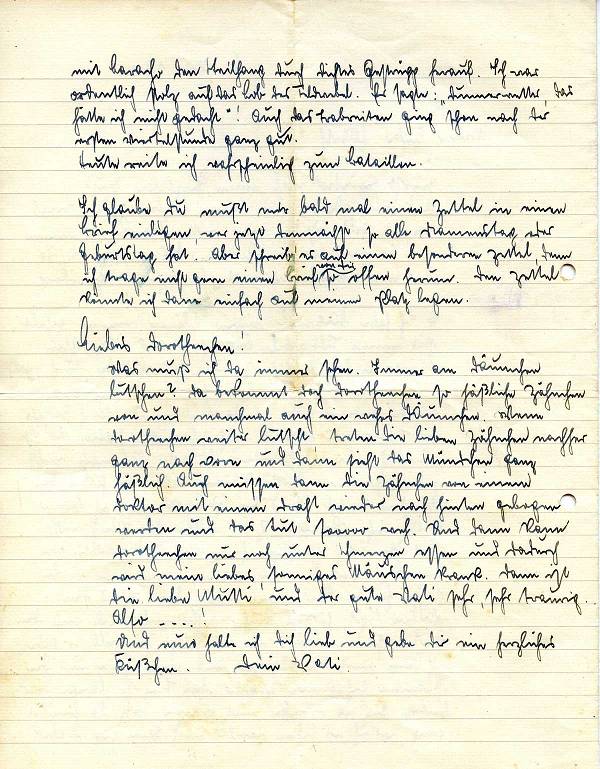 mit Caracho den Steilhang durch dichtes Gestrüpp herauf. Ich war
ordentlich stolz auf das Lob des Er sagte: „Donnerwetter, das
hätte ich nicht gedacht"! Auch das Trabreiten ging schon nach der
ersten Viertelstunde ganz gut.
Heute reite ich wahrscheinlich zum Bataillon.
Ich glaube Du mußt mir bald mal einen Zettel in einen
Brief einlegen, wer jetzt demnächst so alle Namenstag oder
Geburtstag hat. Aber schreib es auf einen besonderen Zettel denn
ich trage nicht gern einen Brief so offen herum. Den Zettel
könnte ich dann einfach auf meinen Platz legen.
Liebes Dorotheechen!
Was muß ich da immer sehen. Immer am Däumchen
lutschen? Da bekommt doch Dorotheechen so häßliche Zähnchen
von und manchmal auch ein wehes Däumchen. Wenn
Dorotheechen weiter lutscht treten die lieben Zähnchen nachher
ganz nach vorn und dann sieht das Mündchen ganz
häßlich. Auch müssen dann die Zähnchen von einem
Doktor mit einem Draht wieder nach hinten gebogen
werden und das tut sooooo weh. Und dann kann
Dorotheechen nur noch unter Schmerzen essen und dadurch
wird mein liebes, sonniges Mäuschen krank. Dann ist
die liebe Mutti, und der gute Vati sehr, sehr traurig.
Also ----!
Und nun halte ich Dich lieb und gebe Dir ein herzliches
Küßchen. Dein Vati.